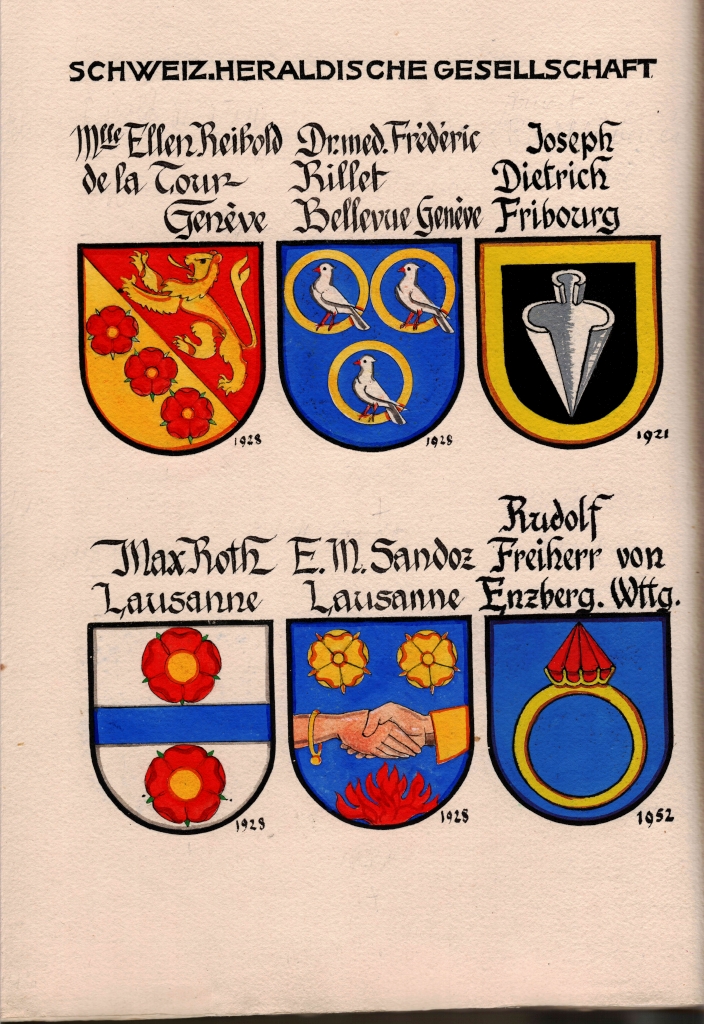 SCHWEIZ.HERALDISCHE GESELLSCHAFT
Mlle Ellen Reibold
de la Tour
Genève
1928
Dr.med. Frédéric
Rillet
Bellevue Genève
1928
Joseph
Dietrich
Fribourg
1921
Max Roth
Lausanne
1928
E.M. Sandoz
Lausanne
1928
Rudolf
Freiherr von
Enzberg. Wttg.
1952